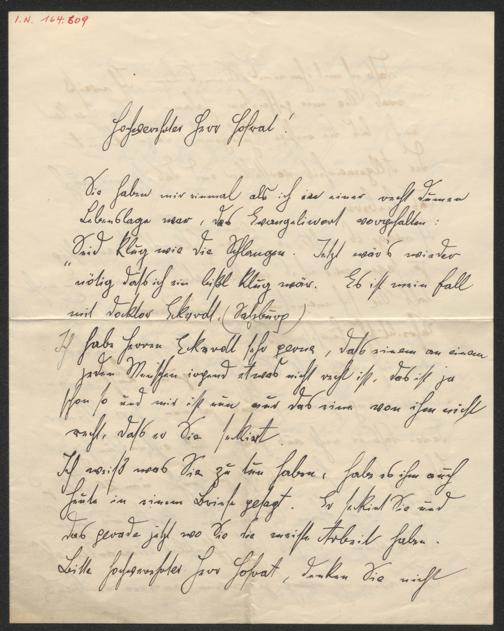 I.N. 164.809
Hochverehrter Herr Hofrat!
Sie haben mir einmal als ich in einer recht dummen
Lebenslage war, das Evangeliwort vorgehalten:
Seid klug wie die Schlangen. Jetzt wärs wieder
nötig daß ich ein bißl klug wär. Es ist mein Fall
mit Doktor Eckardt. (Salzburg)
Ich habe Herrn Eckardt sehr gerne, daß einem an einem
jeden Menschen irgend etwas nicht recht ist, das ist ja
schon so und mir ist nun nur das eine von ihm nicht
recht, daß er Sie sekkiert.
Ich weiß was Sie zu tun haben, habe es ihm auch
heute in einem Briefe gesagt. Er sekiert Sie und
das gerade jetzt wo Sie die meiste Arbeit haben.
Bitte hochverehrter Herr Hofrat, denken Sie nicht